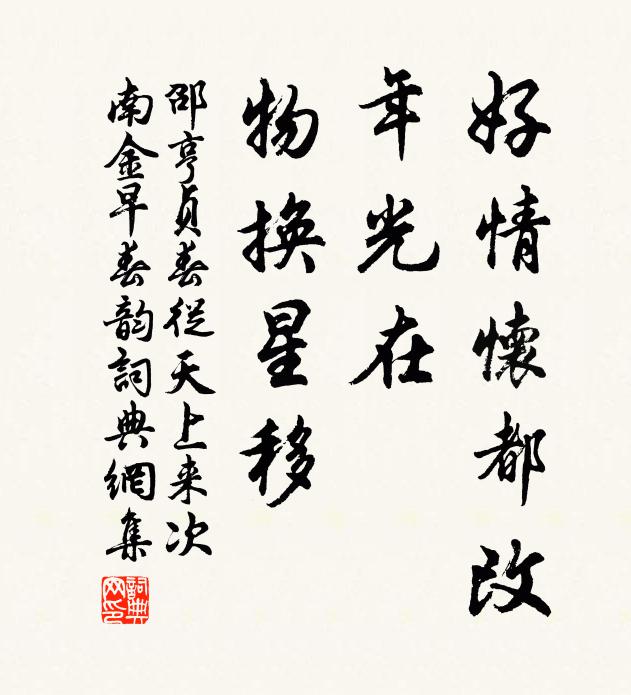 好情懷都改
年光在
物換星移
邵亨貞春從天上来次
南金早春韵詞典網集
詞典網印